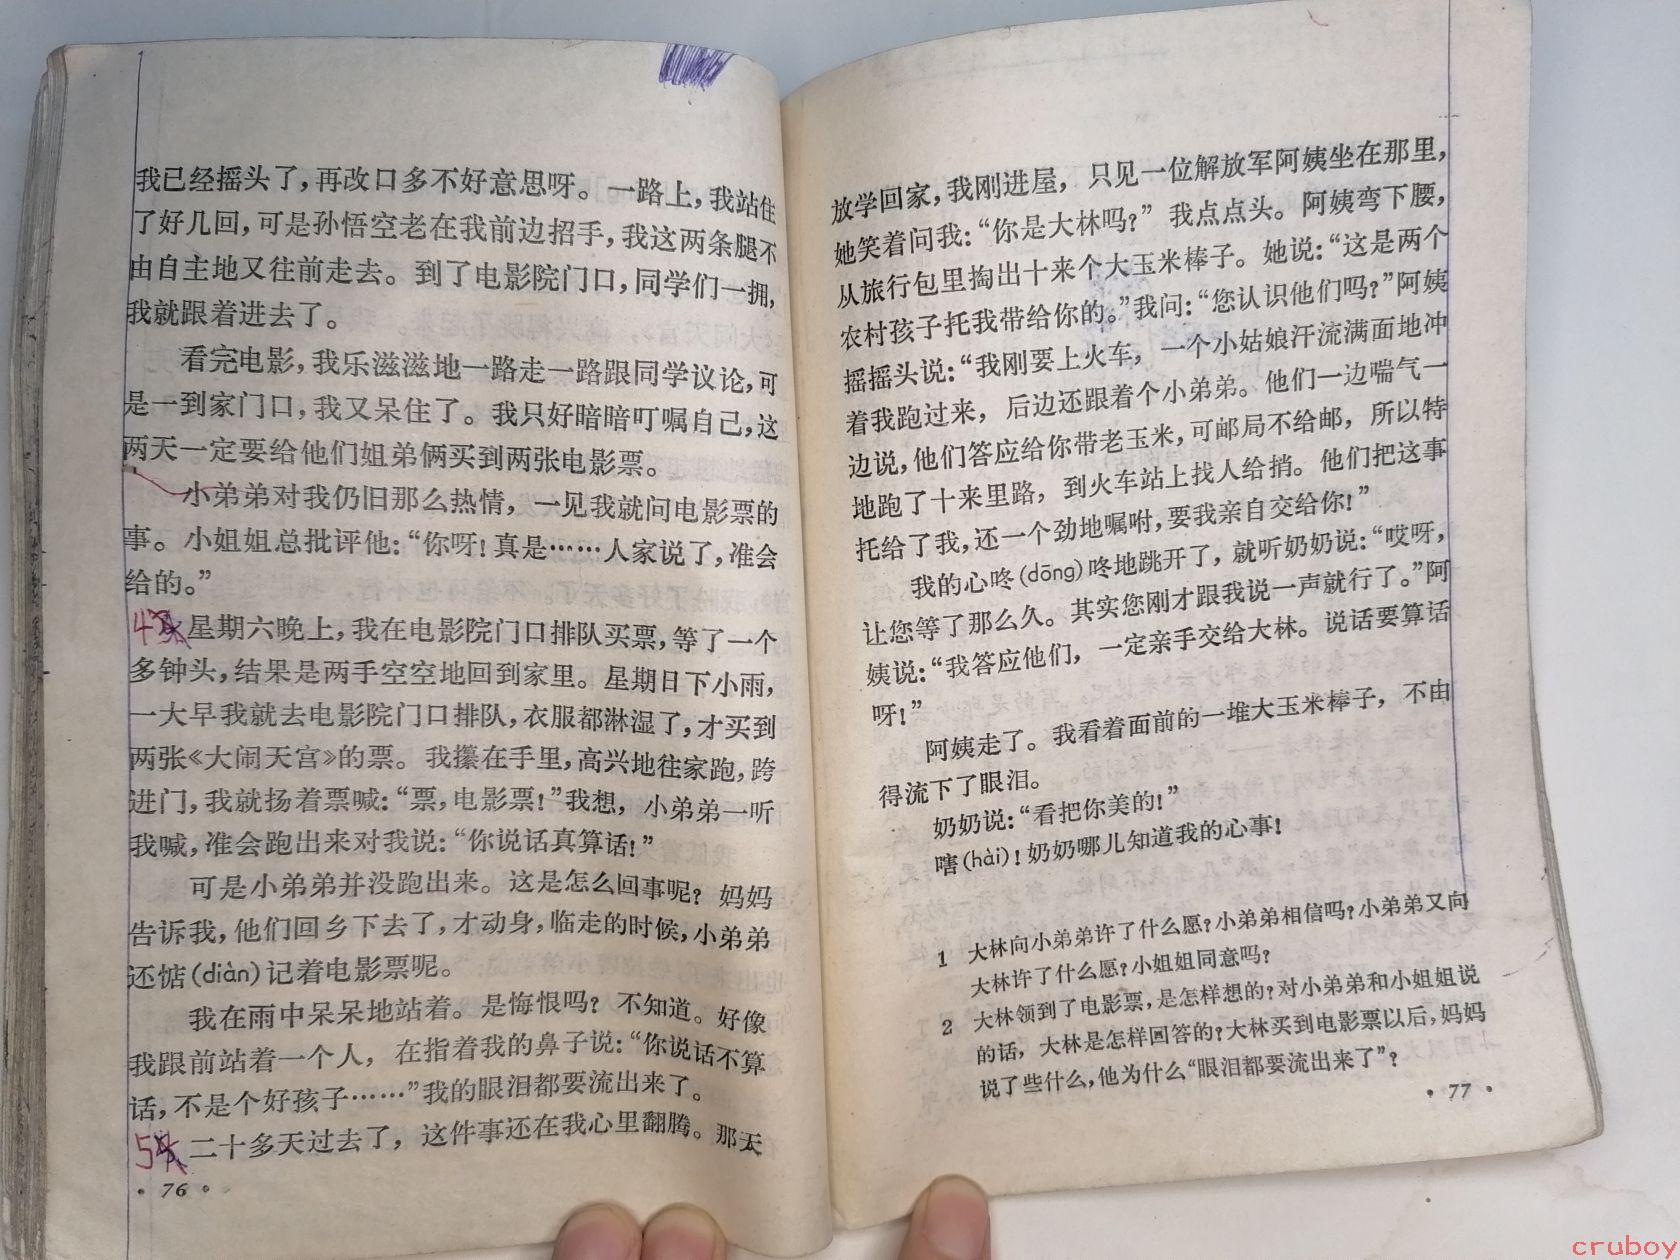 我已经摇头了，再改口多不好意思呀。一路上，我站住
了好几回，可是孙悟空老在我前边招手，我这两条腿不
由自主地又往前走去。到了电影院门口，同学们一拥，
我就跟着进去了。
看完电影，我乐滋滋地一路走一路跟同学议论，可
是一到家门口，我又呆住了。我只好暗暗叮嘱自己，这
两天一定要给他们姐弟俩买到两张电影票。
小弟弟对我仍旧那么热情，一见我就问电影票的
事。小姐姐总批评他：“你呀！真是……人家说了，准会
给的。”
星期六晚上，我在电影院门口排队买票，等了一个
多钟头，结果是两手空空地回到家里。星期日下小雨，
一大早我就去电影院门口排队，衣服都淋湿了，才买到
两张《大闹天宫》的票。我攥在手里，高兴地往家跑，跨
进门，我就扬着票喊：“票，电影票！”我想，小弟弟一听
我喊，准会跑出来对我说：“你说话真算话！”
可是小弟弟并没跑出来。这是怎么回事呢？妈妈
告诉我，他们回乡下去了，才动身，临走的时候，小弟弟
还惦(diàn)记着电影票呢。
我在雨中呆呆地站着。是悔恨吗？不知道。好像
我跟前站着一个人，在指着我的鼻子说：“你说话不算
话，不是个好孩子……”我的眼泪都要流出来了。
二十多天过去了，这件事还在我心里翻腾。那天
· 76 ·
放学回家，我刚进屋，只见一位解放军阿姨坐在那里，
她笑着问我：“你是大林吗？”我点点头。阿姨弯下腰，
从旅行包里掏出十来个大玉米棒子。她说：“这是两个
农村孩子托我带给你的。”我问：“您认识他们吗？”阿姨
摇摇头说：“我刚要上火车，一个小姑娘汗流满面地冲
着我跑过来，后边还跟着个小弟弟。他们一边喘气一
边说，他们答应给你带老玉米，可邮局不给邮，所以特
地跑了十来里路，到火车站上找人给捎。他们把这事
托给了我，还一个劲地嘱咐，要我亲自交给你！”
我的心咚(dōng)咚地跳开了，就听奶奶说：“哎呀，
让您等了那么久。其实您刚才跟我说一声就行了。”阿
姨说：“我答应他们，一定亲手交给大林。说话要算话
呀！”
阿姨走了。我看着面前的一堆大玉米棒子，不由
得流下了眼泪。
奶奶说：“看把你美的！”
嗐(hài)！奶奶哪儿知道我的心事！
1 大林向小弟弟许了什么愿？小弟弟相信吗？小弟弟又向
大林许了什么愿？小姐姐同意吗？
2 大林领到了电影票，是怎样想的？对小弟弟和小姐姐说
的话，大林是怎样回答的？大林买到电影票以后，妈妈
说了些什么，他为什么“眼泪都要流出来了”？
· 77 ·
cruboy